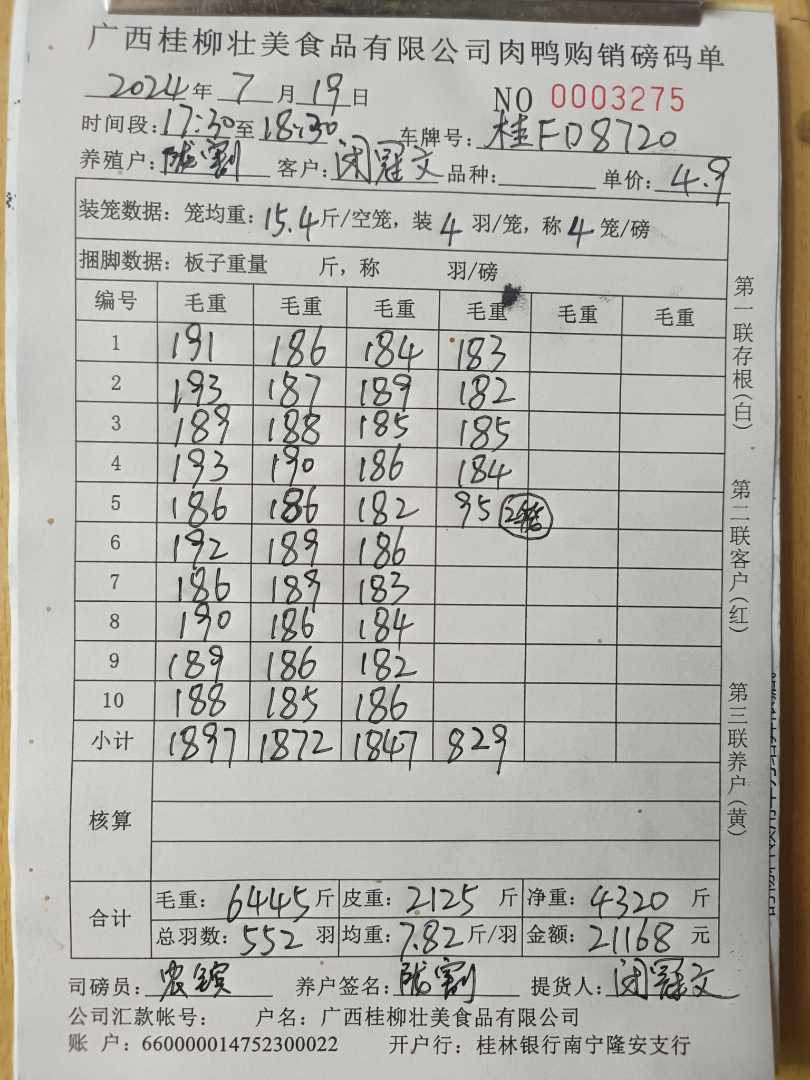 广西桂柳壮美食品有限公司肉鸭购销磅码单
2024年 7 月 19 日 NO 0003275
时间段: 17:30 至 18:30 车牌号: 桂FD8720
养殖户: 陇割 客户: 闭冠文 品种: 单价: 4.9
装笼数据: 笼均重: 15.4 斤/空笼, 装 4 羽/笼, 称 4 笼/磅
捆脚数据: 板子重量 斤, 称 羽/磅
编号 毛重 毛重 毛重 毛重 毛重 毛重
1 191 186 184 183
2 193 187 189 182
3 189 188 185 185
4 193 190 186 184
5 186 186 182 95
6 192 189 186
7 186 189 183
8 190 186 184
9 189 186 182
10 188 185 186
小计 1897 1872 1847 829
核算
合计 毛重: 6445 斤 皮重: 2125 斤 净重: 4320 斤
总羽数: 552 羽 均重: 7.82 斤/羽 金额: 21168 元
司磅员: 养户签名: 陇割 提货人: 闭冠文
公司汇款帐号: 户名: 广西桂柳壮美食品有限公司
账 户: 660000014752300022 开户行: 桂林银行南宁隆安支行
第一联存根(白)
第二联客户(红)
第三联养户(黄)